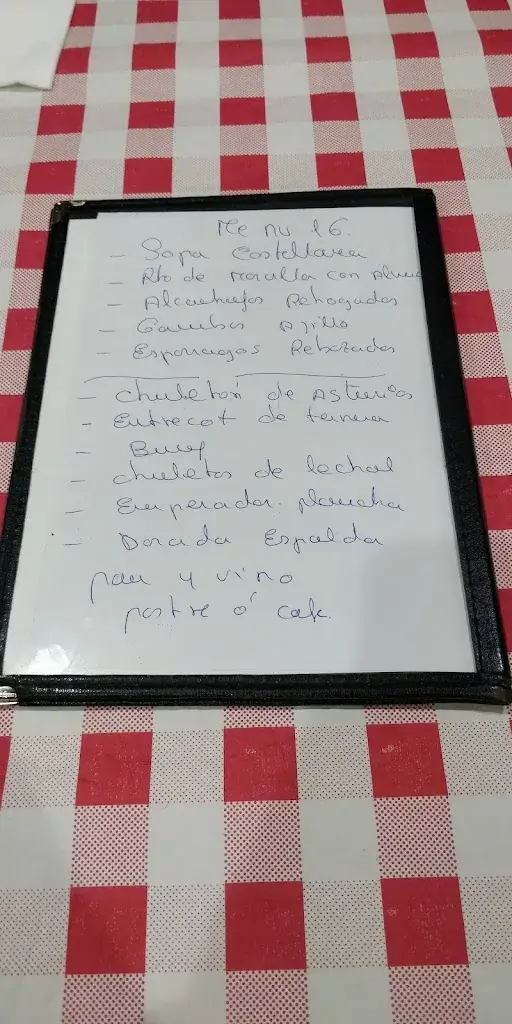 Menu 16.
- Sopa Castellana
- Rto de Morcilla con
- Alcachofas Rehogadas
- Gambas Ajillo
- Esparragos Rebozados
- Chuleton de Asturias
- Entrecot de ternera
- Buey
- Chuletas de lechal
- Emperador plancha
- Dorada Espalda
pan y vino
postre ó cafe.